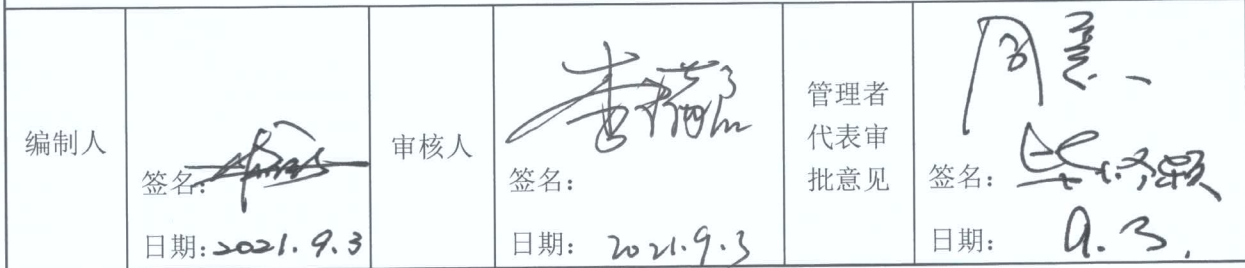 编制人
签名:
日期:2021.9.3
审核人
签名:
日期: 2021.9.3
管理者
代表审
批意见
同意、
签名:
日期: 9.3.